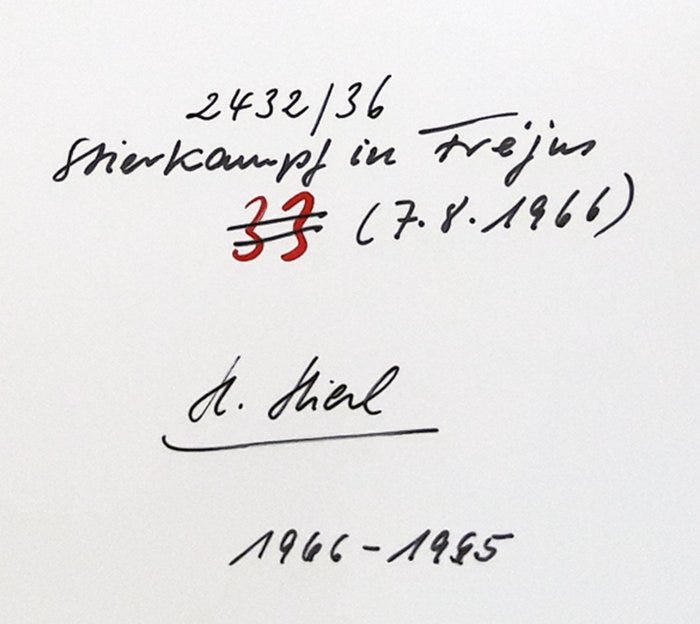 2432/36
Stierkampf in Fréjus
33 (7.8.1966)
H. Stierl
1966-1995